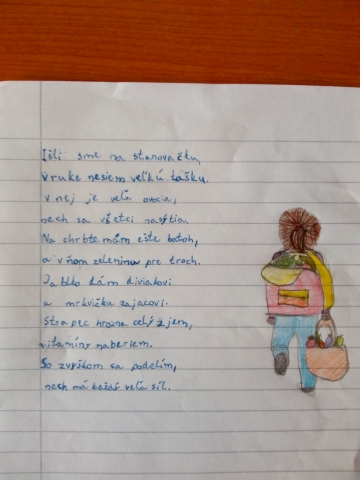 Išli sme na stanovačku,
v ruke nesiem veľkú tašku.
v nej je veľa ovocia,
nech sa všetci nasýtia.
Na chrbte mám ešte batoh,
a v ňom zeleninu pre troch.
Jablko dám diviakovi
a mrkvičku zajacovi.
Strapec hrozna celý zjem,
vitamíny naberiem.
So zvyškom sa podelím,
nech má každý veľa síl.